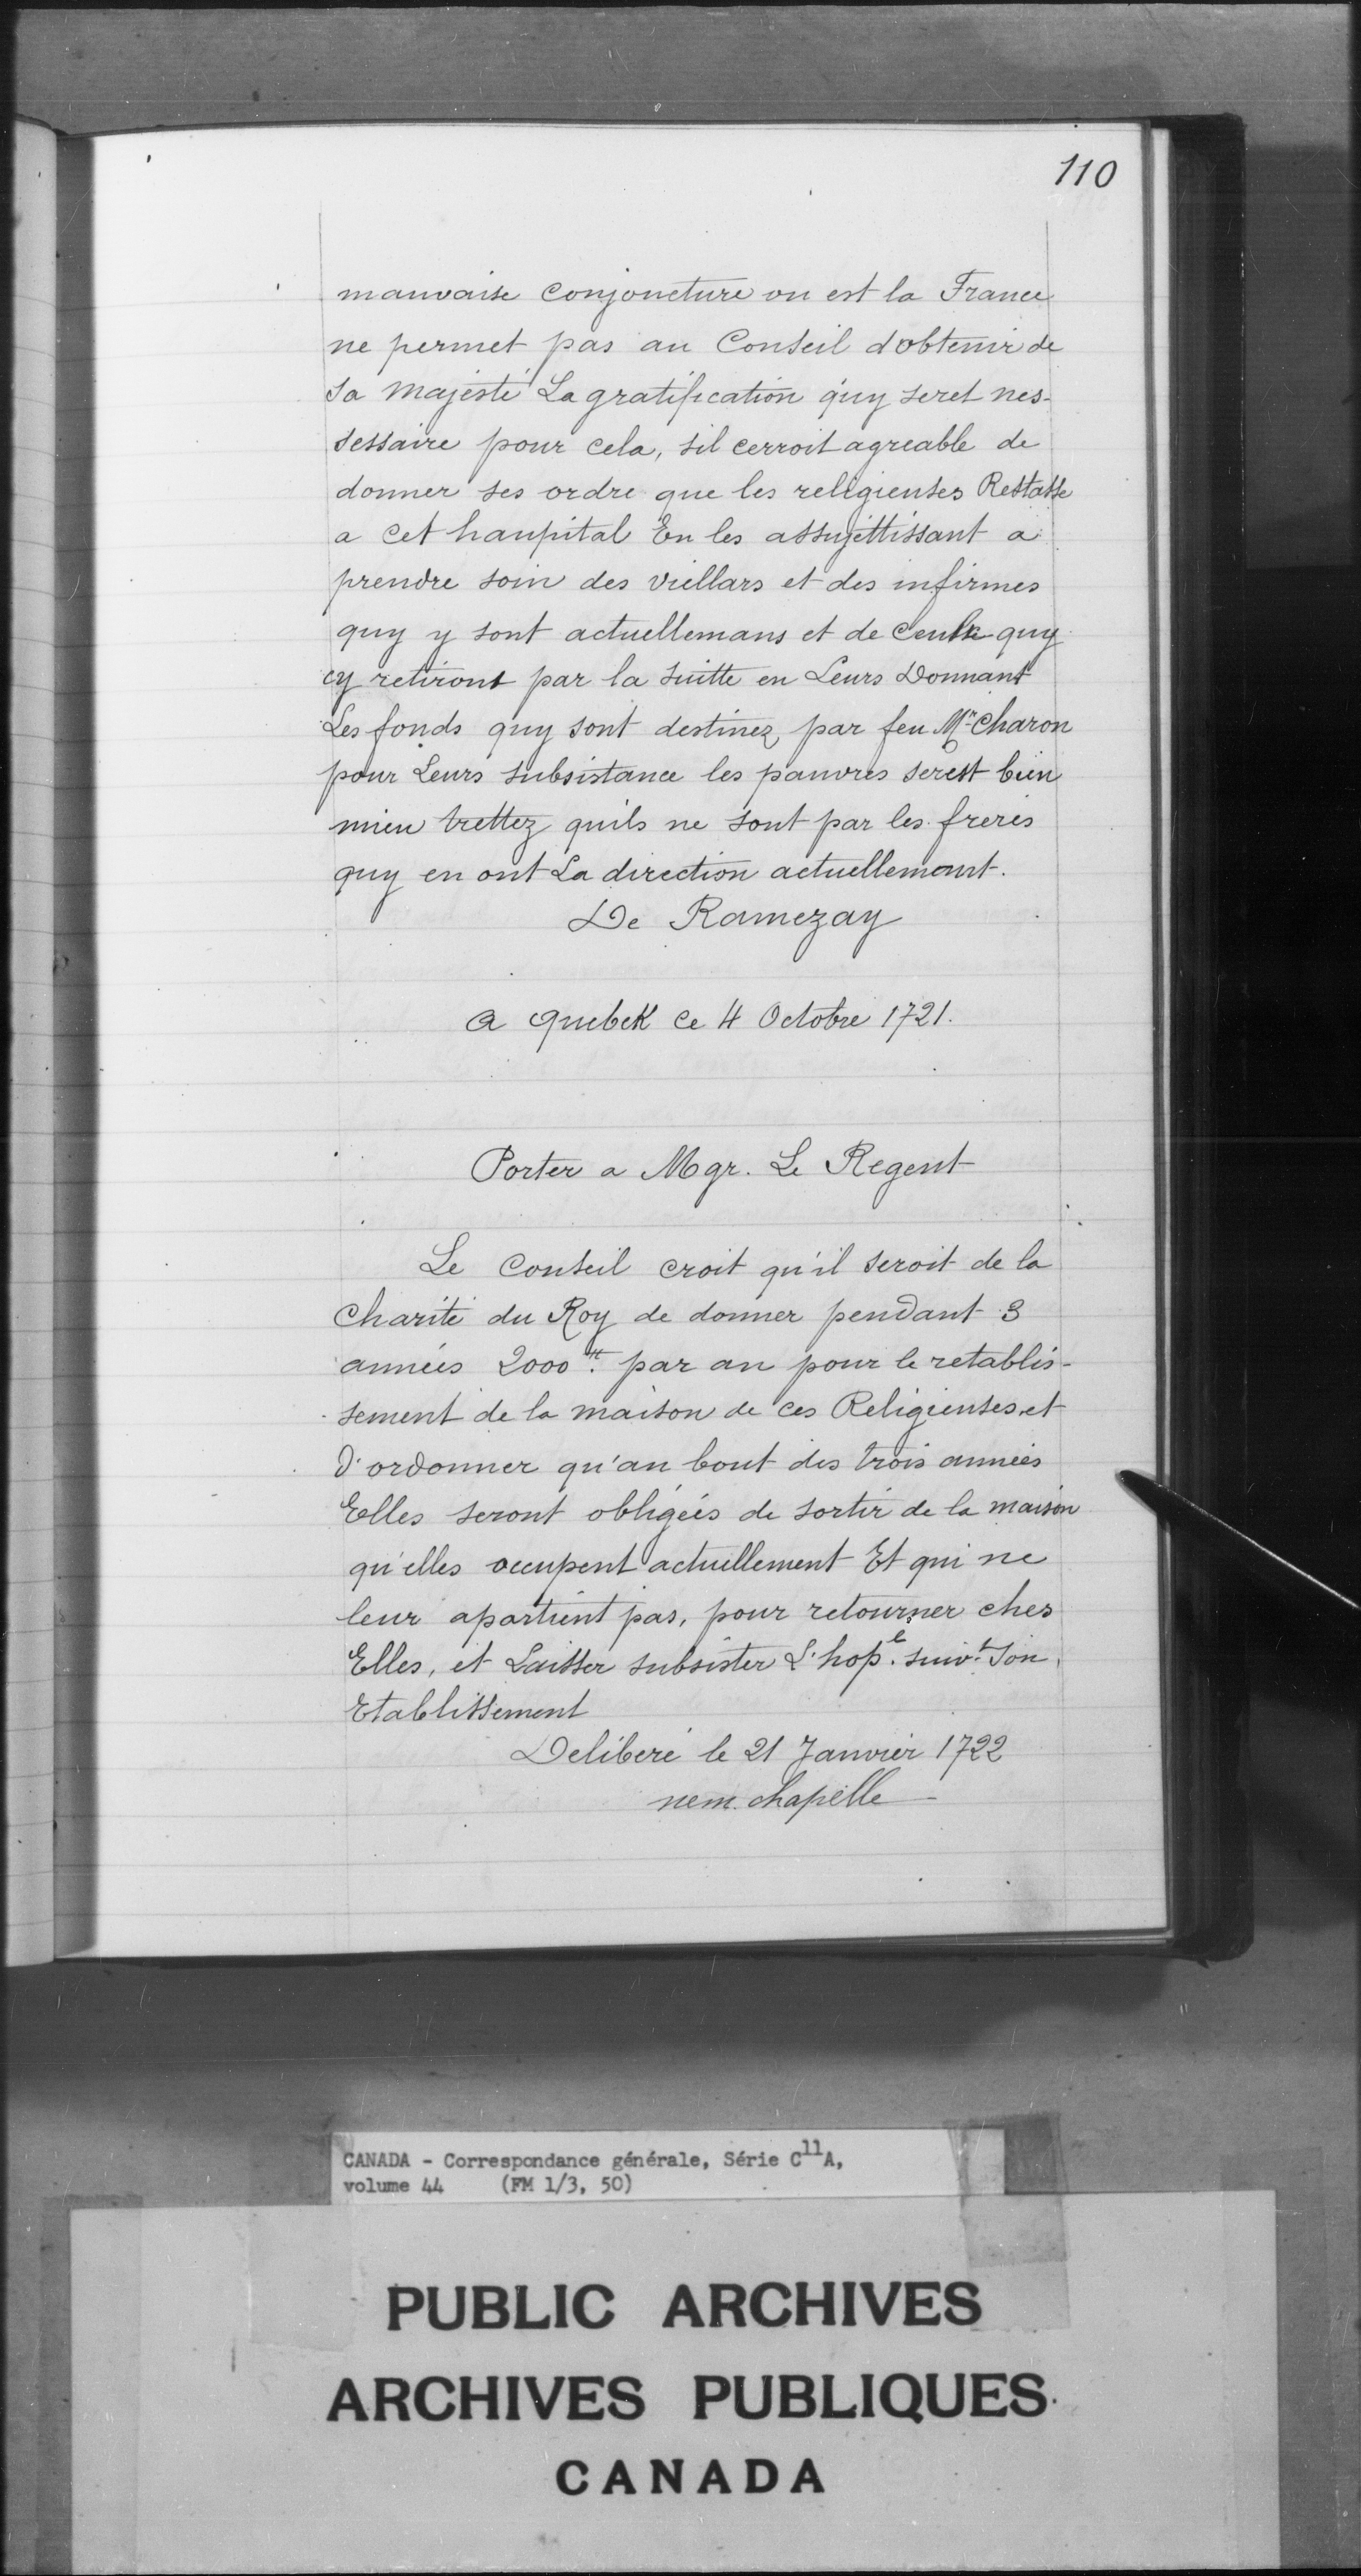 110
mauvaise conjoncture ou est la France
ne permet pas au Conseil dobtenir de
Sa Majesté La gratification quy seret nes-
sessaire pour cela, sil cerroit agreable de
donner ses ordre que les religieuses Restasse
a cet haupital En les assujettissant a
prendre soin des viellars et des infirmes
quy y sont actuellemans et de ceulx quy
cy retiront par la suitte en Leurs Donnant
Les fonds quy sont destinez par feu Mr. Charon
pour Leurs subsistance les pauvres serest bien
mieu trettez quils ne sont par les freres
quy en ont La direction actuellemant.
De Ramezay
a quebeK ce 4 Octobre 1721.
Porter a Mgr. Le Regent
Le Conseil croit qu'il seroit de la
Charité du Roy de donner pendant 3
années 2000tt. par an pour le retablis-
sement de la maison de ces Religieuses et
d'ordonner qu'au bout des trois années
Elles seront obligées de sortir de la maison
qu'elles occupent actuellement Et qui ne
leur apartient pas, pour retourner ches
Elles, et Laisser subsister L'hop.l suiv.t Son
Etablissement
Deliberé le 21 Janvier 1722
nem. chapelle
CANADA - Correspondance générale, Série C11A,
volume 44 (FM 1/3, 50)
PUBLIC ARCHIVES
ARCHIVES PUBLIQUES
CANADA